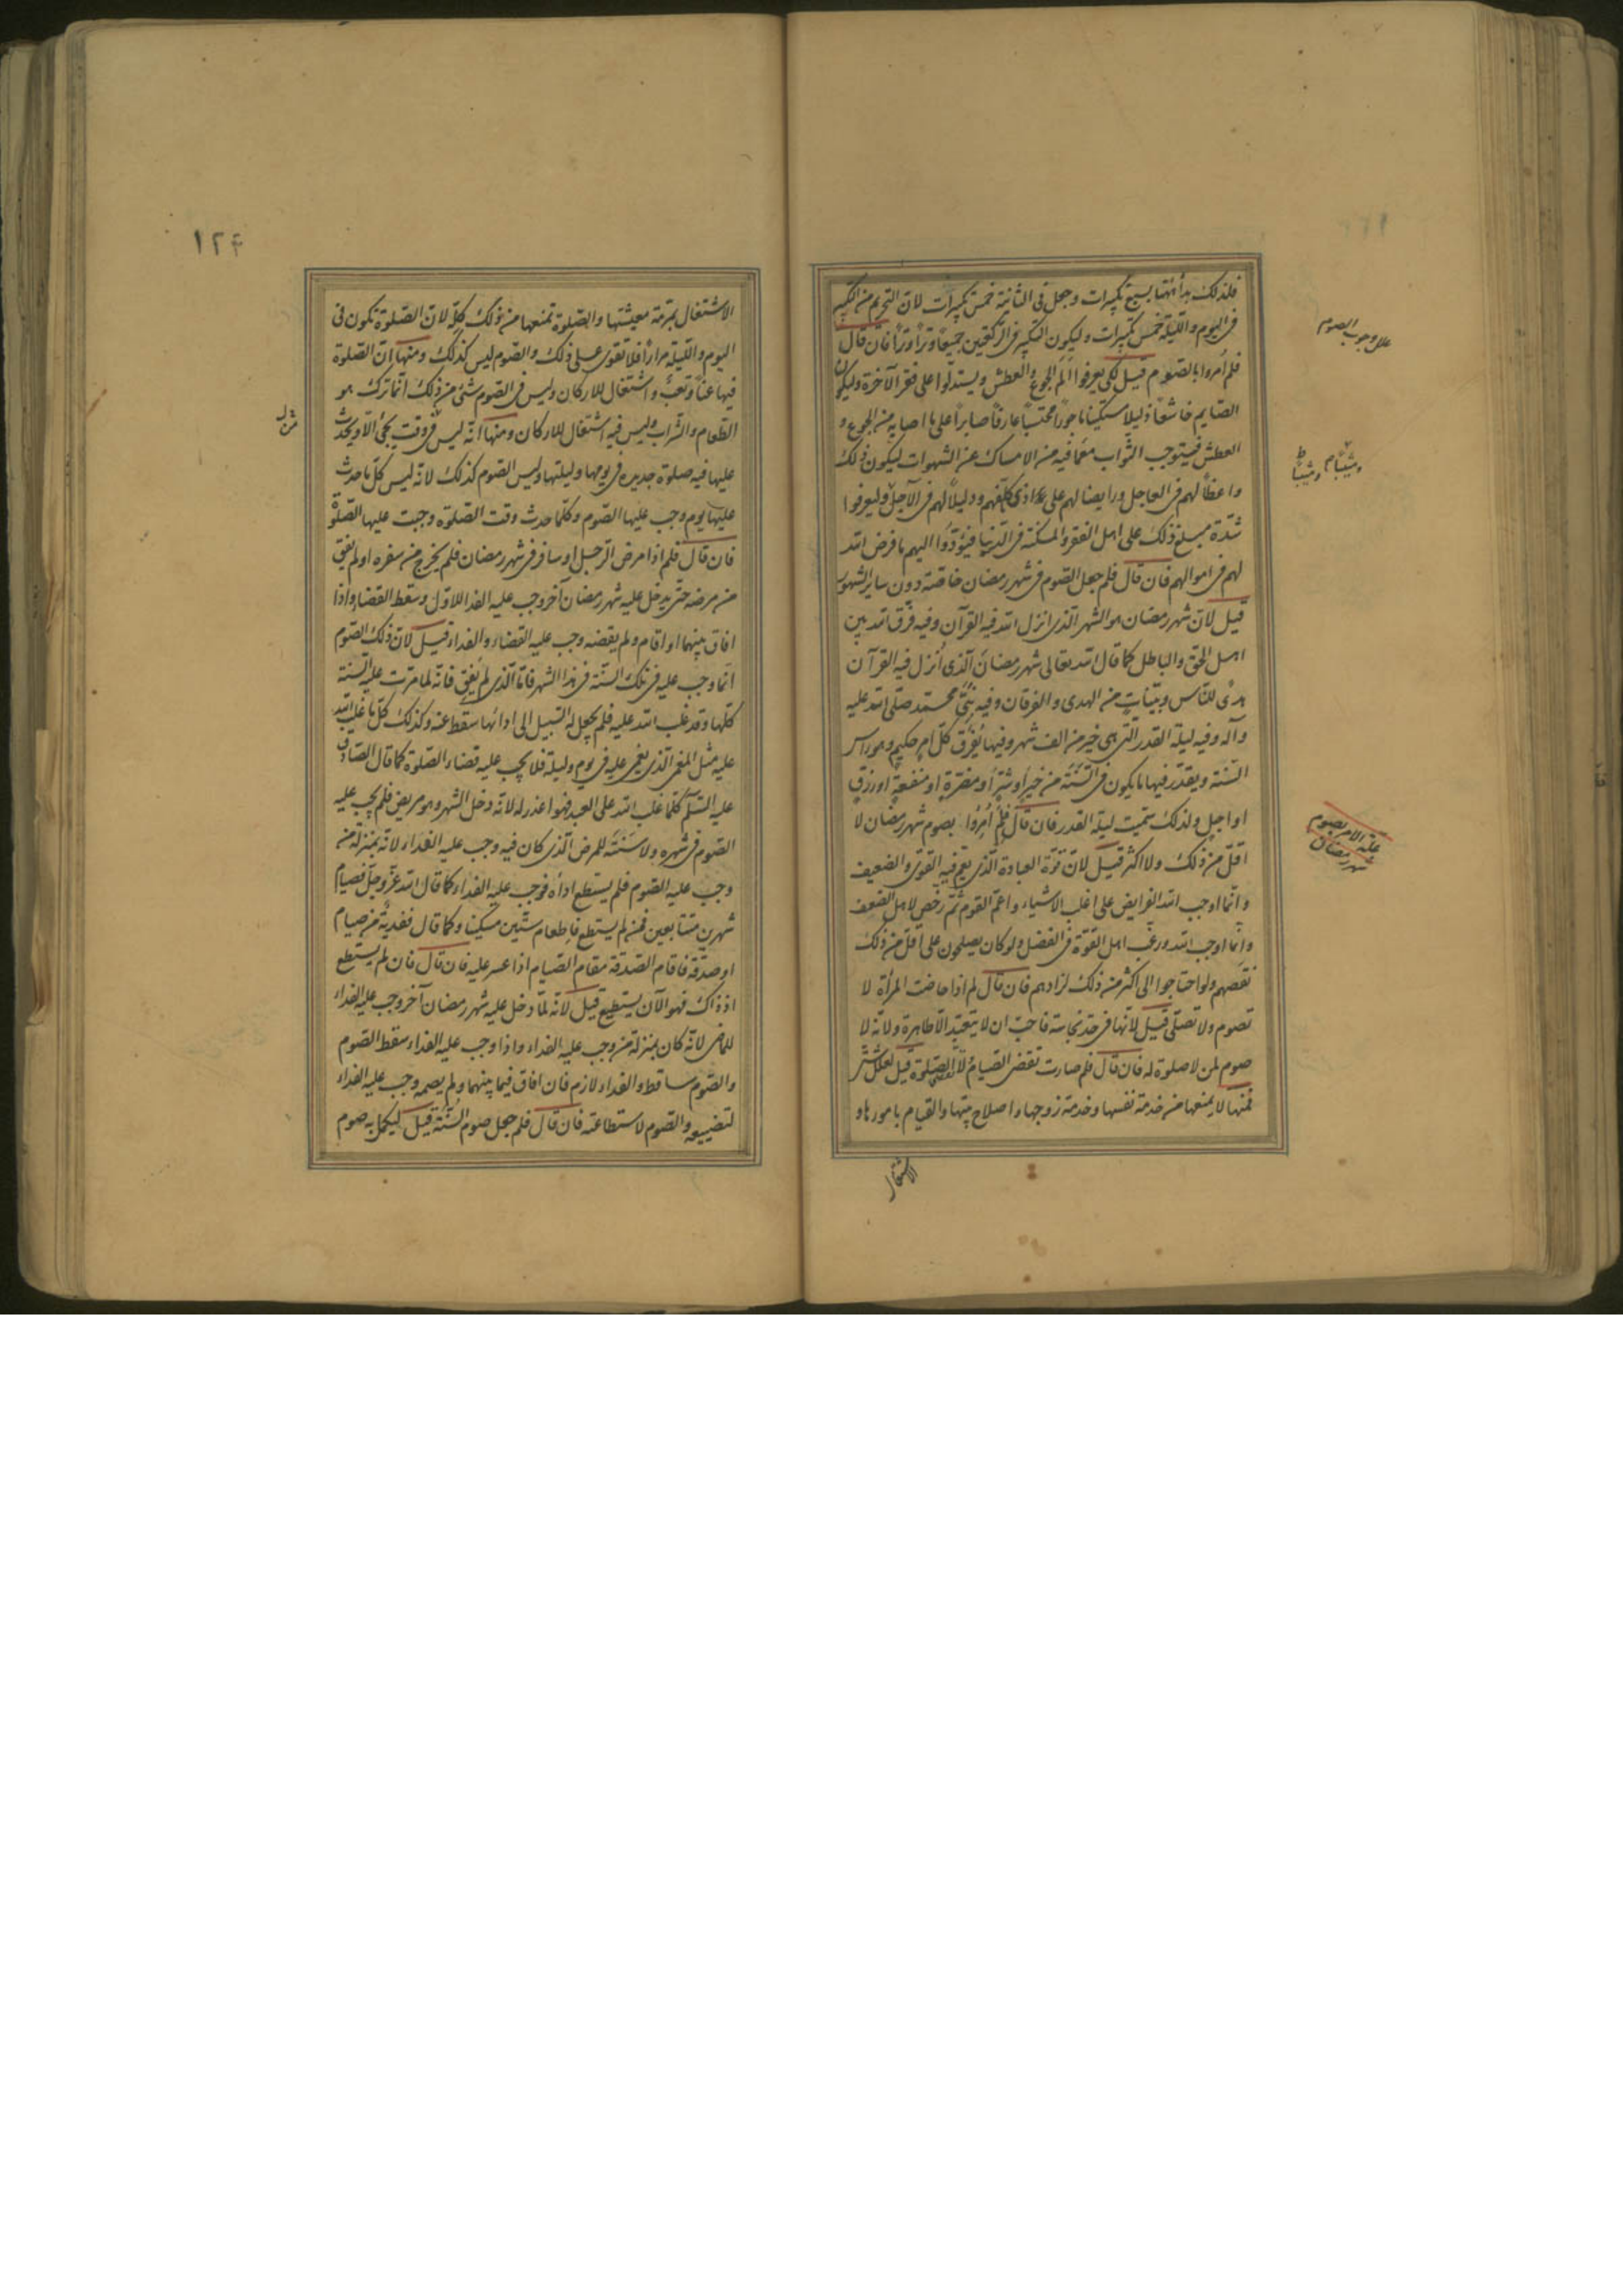 فلذلك بدأ فيها بسبع تكبيرات وجعل فى الثانية خمس تكبيرات لان التحريم من التكبير
فى اليوم والليلة خمس تكبيرات وليكون التكبير فى الركعتين جميعًا وترًا وترًا فان قال
فلم اُمروا بالصّوم قيل لكى يعرفوا اَلَم الجوع والعطش ويستدلوا على فقر الآخرة وليكون
الصّايم خاشعًا ذليلًا مستكينا ماجورًا محتسبًا عارفًا صابرًا على ما اصابه من الجوع و
العطش فيستوجب الثّواب مع ما فيه من الامساك عن الشهوات ليكون ذلك
واعظًا لهم فى العاجل ورايضا لهم على اداء ما كلّفهم ودليلًا لهم فى الآجل وليعرفوا
شدّة مبلغ ذلك على اهل الفقر والمسكنة فى الدّنيا فيؤدّوا اليهم ما فرض الله
لهم فى اموالهم فان قال فلم جعل الصّوم فى شهر رمضان خاصّة دون ساير الشهور
قيل لانّ شهر رمضان هو الشهر الّذى انزل الله فيه القرآن وفيه فرّق الله بين
اهل الحقّ والباطل كما قال الله تعالى شهر رمضان الّذى اُنزل فيه القرآن
هدًى للنّاس وبيّنات من الهدى والفرقان وفيه نبّئ محمّد صلّى الله عليه
وآله وفيه ليلة القدر الّتى هى خير من الف شهر وفيها يُفرَق كلّ امر حكيم وهو راس
السّنة ويقدّر فيها ما يكون فى السّنة من خير او شرّ او مضرّة او منفعة او رزق
او اجل ولذلك سمّيت ليلة القدر فان قال فلم اُمروا بصوم شهر رمضان لا
اقلّ من ذلك ولا اكثر قيل لانّه قوّة العبادة الّذى يعمّ فيه القوىّ والضعيف
وانّما اوجب الله الفرايض على اغلب الاشياء واعمّ القوم ثمّ رخّص لاهل الضعف
وانّما اوجب الله ورغّب اهل القوّة فى الفضل ولو كان يصلحون على اقلّ من ذلك
نقصهم ولو احتاجوا الى اكثر من ذلك لزادهم فان قال لم اذا حاضت المرأة لا
تصوم ولا تصلّى قيل لانّها فى حدّ نجاسة فاحبّ ان لا يتعبّد الّا طاهرة ولانّه لا
صوم لمن لا صلوة له فان قال فلم صارت تقضى الصّيام ولا تقضى الصّلوة قيل لعلل شتّى
فمنها لا يمنعها من خدمة نفسها وخدمة زوجها واصلاح بيتها والقيام بامورها و
الاشتغال
علل وجوب الصوم
علّة الامر بصوم
شهر رمضان
١٢٤
الاشتغال بمرمّة معيشتها والصّلوة تمنعها من ذلك كلّه لانّ الصّلوة تكون فى
اليوم والليلة مرارًا فلا تقوى على ذلك والصّوم ليس كذلك ومنها انّ الصّلوة
فيها عناء وتعب واشتغال للاركان وليس فى الصّوم شئ من ذلك انّما ترك هو
الطّعام والشراب وليس فيه اشتغال للاركان ومنها انّه ليس من وقت يجئ الّا ويحدث
عليها فيه صلوة جديدة فى يومها وليلتها وليس الصّوم كذلك لانّه ليس كلّ ما حدث
عليها يوم وجب عليها الصّوم وكلّما حدث وقت الصّلوة وجبت عليها الصّلوة
فان قال فلم اذا مرض الرّجل او سافر فى شهر رمضان فلم يخرج من سفره او لم يفق
من مرضه حتّى يدخل عليه شهر رمضان آخر وجب عليه الفداء للاوّل وسقط القضاء واذا
افاق بينهما او اقام ولم يقضه وجب عليه القضاء والفداء قيل لانّ ذلك الصّوم
انّما وجب عليه فى تلك السّنة فى هذا الشهر فامّا الّذى لم يفق فانّه لمّا مرّت عليه السّنة
كلّها وقد غلب الله عليه فلم يجعل له السّبيل الى ادائها سقط عنه وكذلك كلّ ما غلب الله
عليه مثل المغمى الّذى يغمى عليه فى يوم وليلة فلا يجب عليه قضاء الصّلوة كما قال الصّادق
عليه السّلم كلّما غلب الله على العبد فهو اعذر له لانّه دخل الشهر وهو مريض فلم يجب عليه
الصّوم فى شهره ولا سنته للمرض الّذى كان فيه ووجب عليه الفداء لانّه بمنزلة من
وجب عليه الصّوم فلم يستطع اداه فوجب عليه الفداء كما قال الله عزّ وجلّ فصيام
شهرين متتابعين فمن لم يستطع فاطعام ستّين مسكينا وكما قال ففدية من صيام
او صدقة فاقام الصّدقة مقام الصّيام اذا عسر عليه فان قال فان لم يستطع
اذ ذاك فهو الآن يستطيع قيل لانّه لمّا دخل عليه شهر رمضان آخر وجب عليه الفداء
للماضى لانّه كان بمنزلة من وجب عليه الفداء واذا وجب عليه الفداء سقط الصّوم
والصّوم ساقط والفداء لازم فان افاق فيما بينهما ولم يصمه وجب عليه الفداء
لتضييعه والصّوم لاستطاعته فان قال فلم جعل صوم السّنة قيل ليكمل به صوم